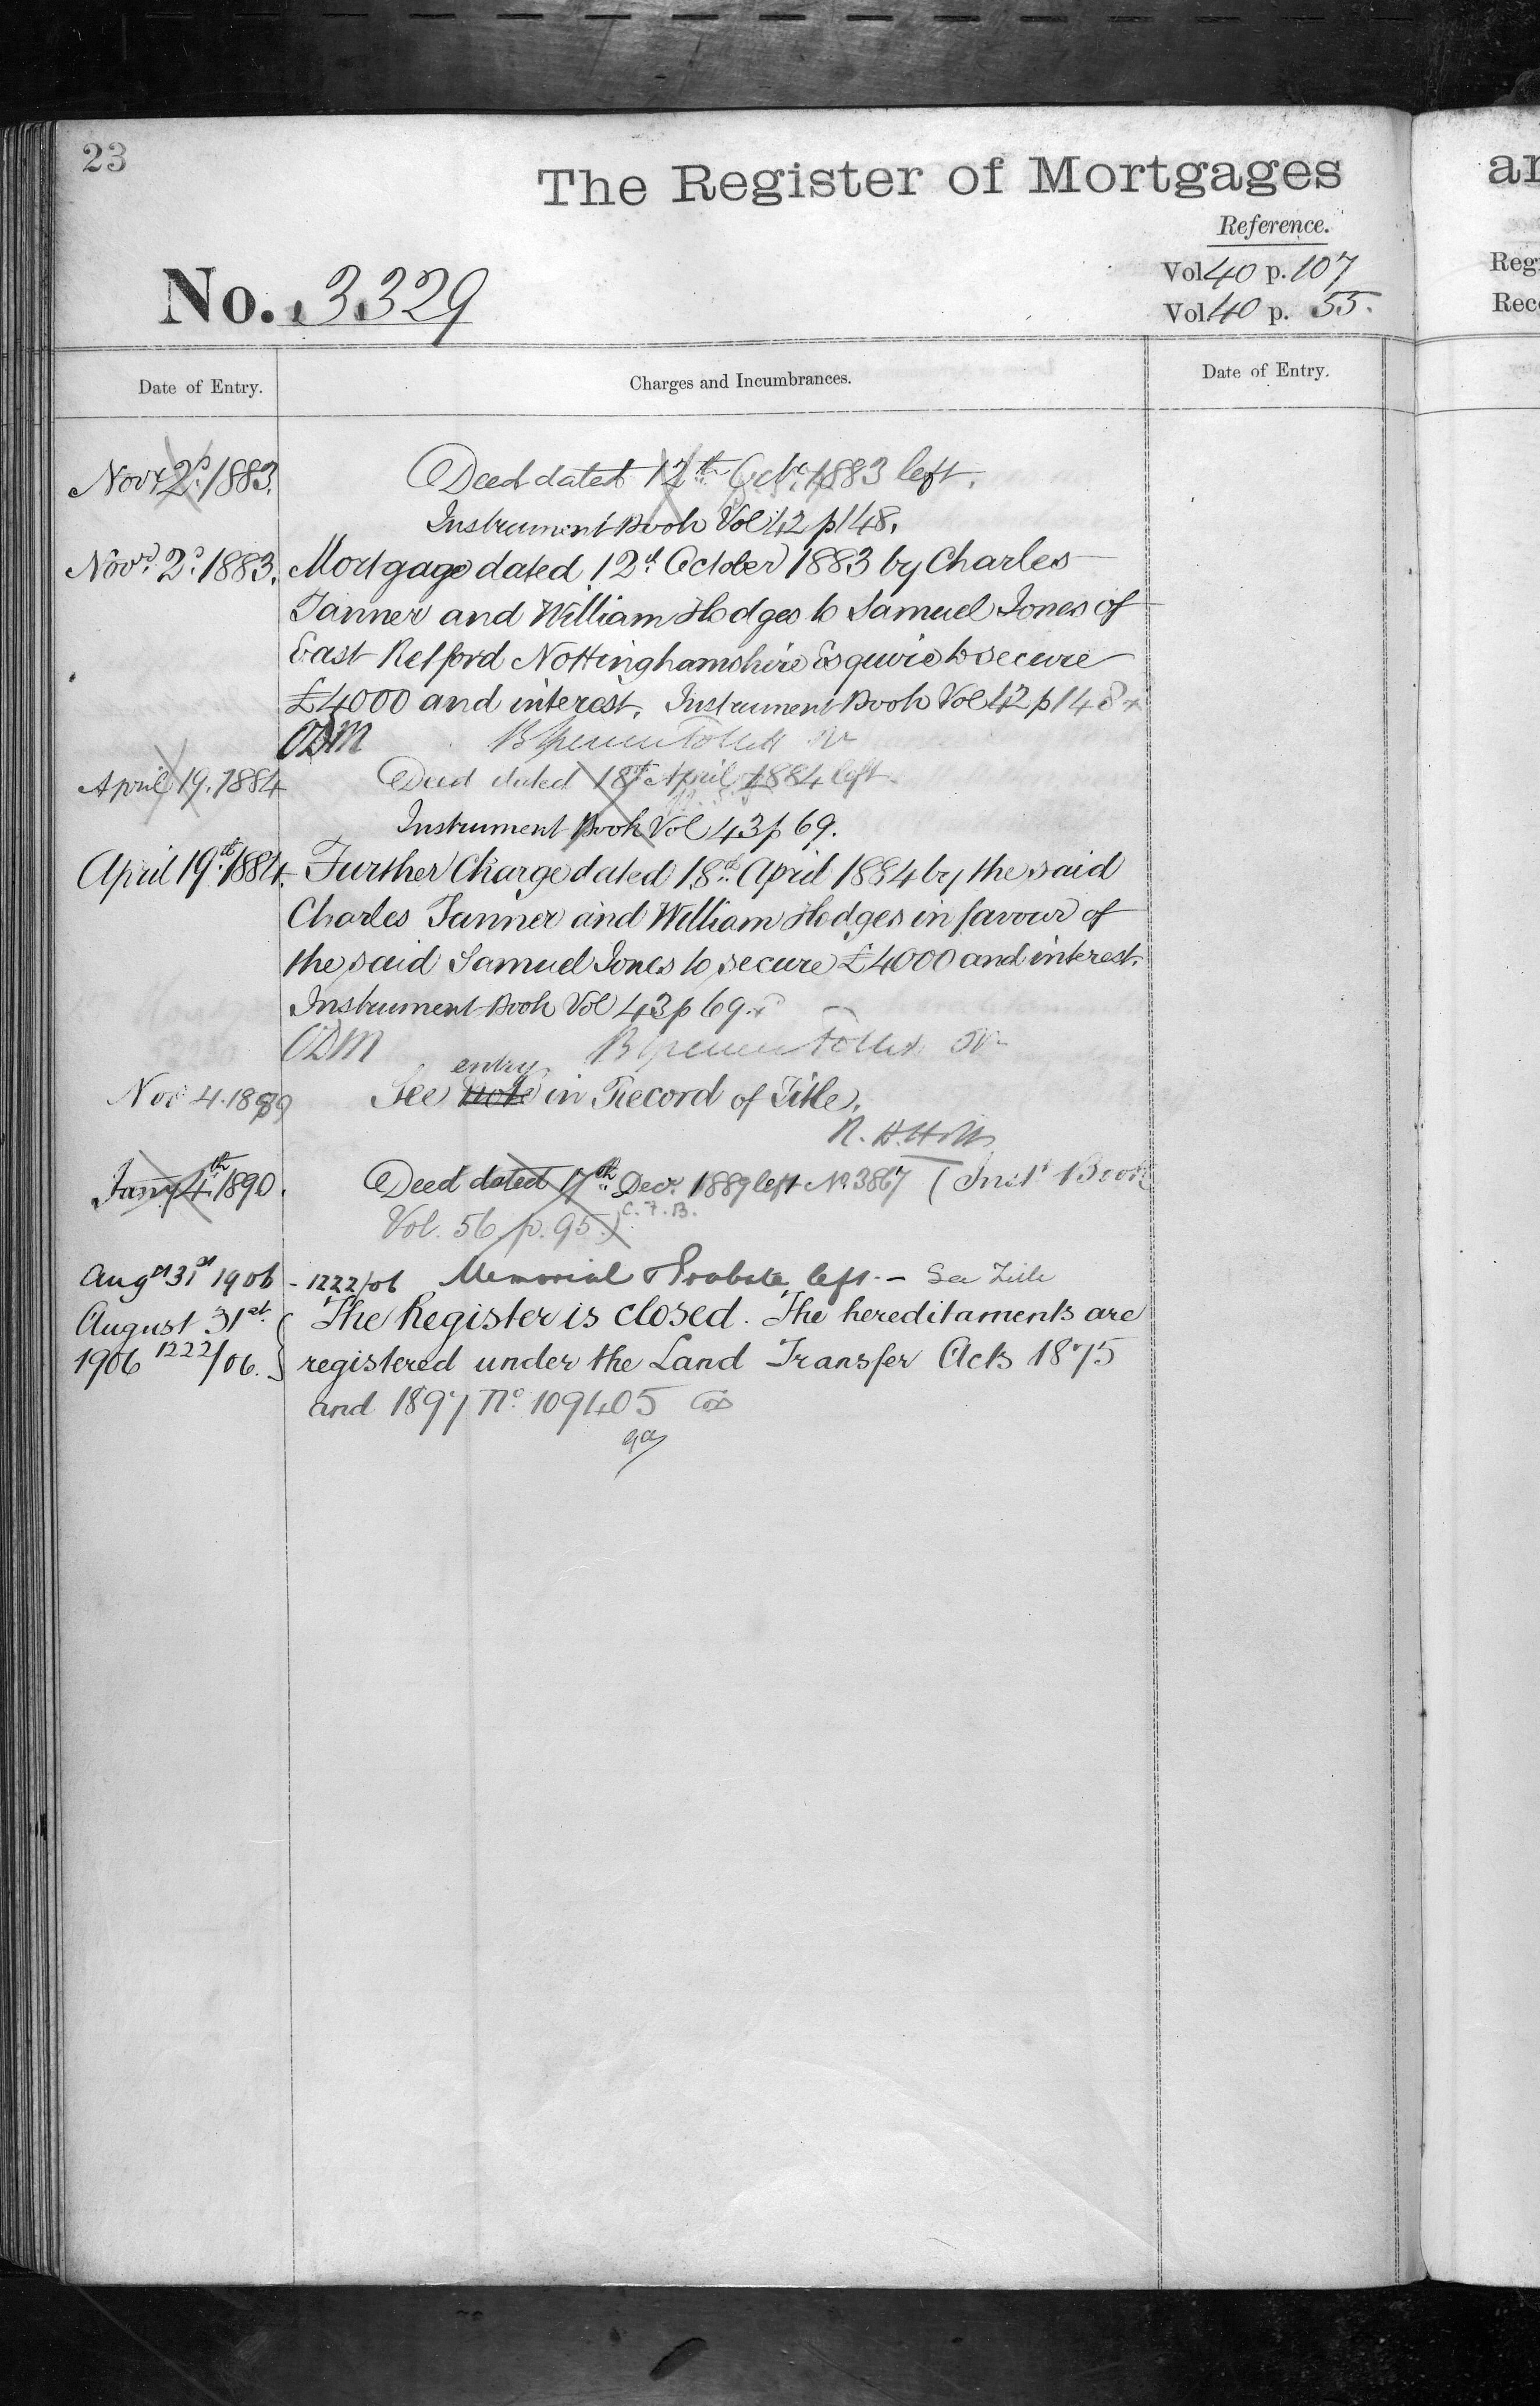 23
The Register of Mortgages
Reference.
Vol 40 p. 107
Vol 40 p. 55.
No. 3329
Date of Entry.
Charges and Incumbrances.
Date of Entry.
Novr 2d. 1883. Deed dated 12th Octr. 1883 left.
Instrument Book Vol 42 p 148.
Novr. 2d. 1883. Mortgage dated 12th October 1883 by Charles
Tanner and William Hodges to Samuel Jones of
East Retford Nottinghamshire Esquire to secure
£4000 and interest. Instrument Book Vol 42 p 148
ODM
April 19. 1884 Deed dated 18th April 1884 left
Instrument Book Vol 43 p 69.
April 19th. 1884. Further Charge dated 18th. April 1884 by the said
Charles Tanner and William Hodges in favour of
the said Samuel Jones to secure £4000 and interest.
Instrument Book Vol 43 p 69.
ODM
entry
Nov 4. 1889 See note in Record of Title.
R. H. Holt
Jany 4th. 1890. Deed dated 17th. Decr. 1889 left No. 3867 (Inst Book
Vol. 56. p. 95.) C.F.B.
Augst 31st 1906 - 1222/06 Memorial & Probate left. - See Title
August 31st. The Register is closed. The hereditaments are
1906 1222/06. registered under the Land Transfer Acts 1875
and 1897 No. 109405
ar
Reg
Rec